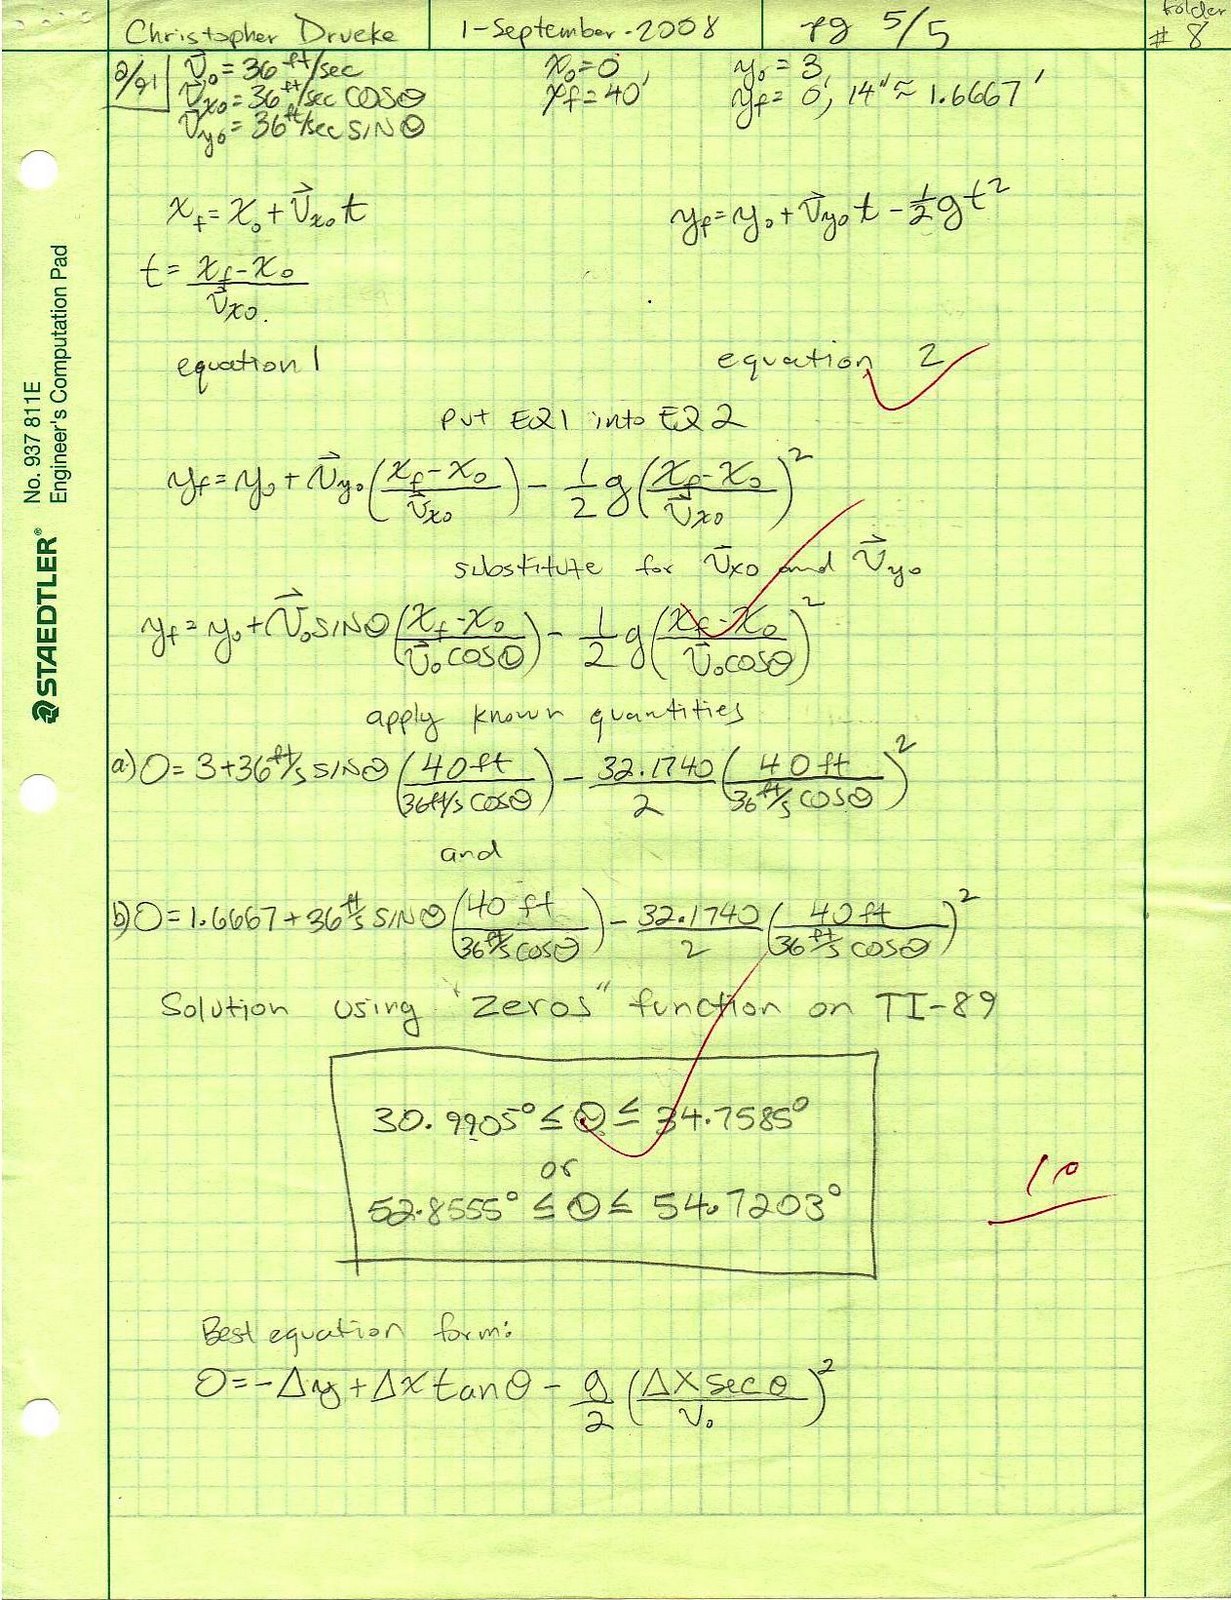 Christopher Drueke 1-September-2008 pg 5/5 folder # 8
2/91 V⃗₀ = 36 ft/sec x₀ = 0 y₀ = 3
V⃗x₀ = 36 ft/sec COSθ xf = 40' yf = 0', 14" ≈ 1.6667'
V⃗y₀ = 36 ft/sec SINθ
xf = x₀ + V⃗x₀ t yf = y₀ + V⃗y₀ t - 1/2 g t²
t = (xf - x₀)/V⃗x₀.
equation 1 equation 2
put EQ1 into EQ 2
yf = y₀ + V⃗y₀ ((xf - x₀)/V⃗x₀) - 1/2 g ((xf - x₀)/V⃗x₀)²
substitute for V⃗x₀ and V⃗y₀
yf = y₀ + V⃗₀ SINθ ((xf - x₀)/(V⃗₀ COSθ)) - 1/2 g ((xf - x₀)/(V⃗₀ COSθ))²
apply known quantities
a) 0 = 3 + 36 ft/s SINθ (40 ft/(36 ft/s COSθ)) - 32.1740/2 (40 ft/(36 ft/s COSθ))²
and
b) 0 = 1.6667 + 36 ft/s SINθ (40 ft/(36 ft/s COSθ)) - 32.1740/2 (40 ft/(36 ft/s COSθ))²
Solution using "zeros" function on TI-89
30.9905° ≤ θ ≤ 34.7585°
or
52.8555° ≤ θ ≤ 54.7203°
10
Best equation form:
0 = -Δy + Δx tanθ - g/2 (Δx secθ/V₀)²
STAEDTLER® No. 937 811E
Engineer's Computation Pad